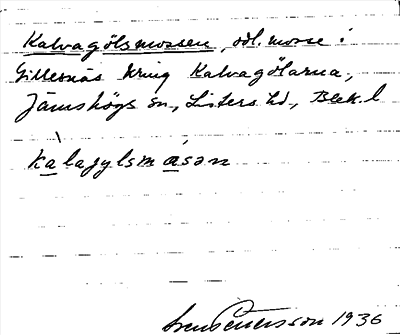 Kalvagölsmossen, odl. mosse i
Gillesnäs kring Kalvagölarna,
Jämshögs sn., Listers hd., Blek. l
kalagylsmåsən
Sven Benson 1936